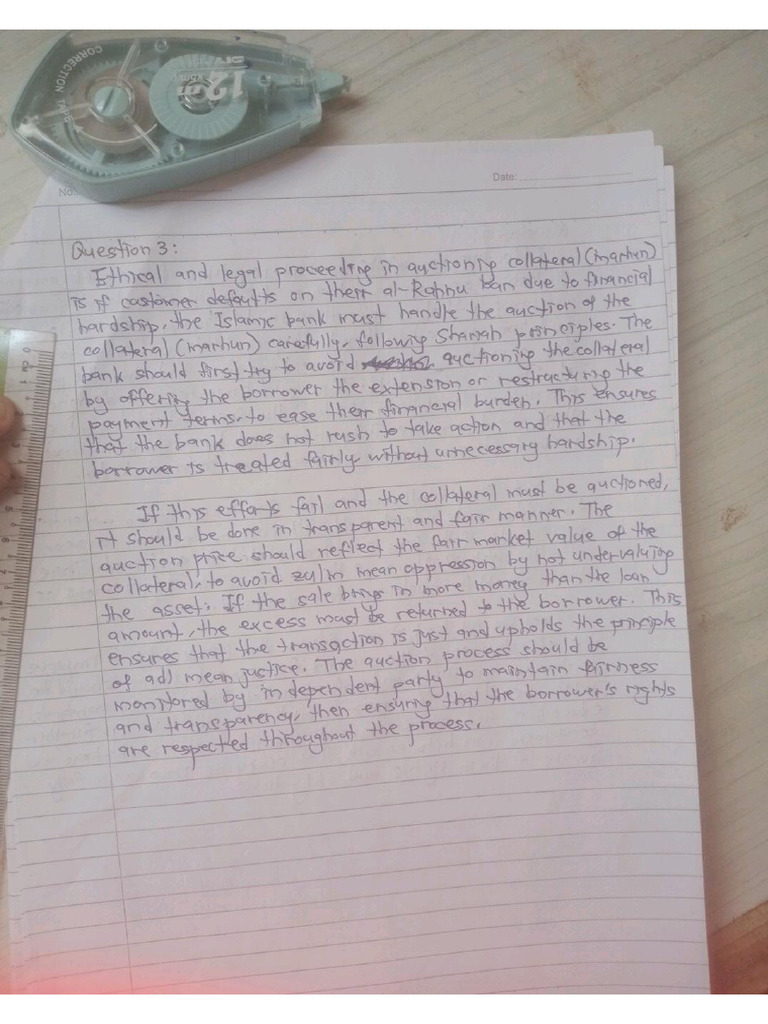 CORRECTION TAPE
12m
No.:
Date:
Question 3:
Ethical and legal proceeding in auctioning collateral (marhun)
is if customer defaults on their al-Rahnu loan due to financial
hardship, the Islamic bank must handle the auction of the
collateral (marhun) carefully, following Shariah principles. The
bank should first try to avoid auctioning the collateral
by offering the borrower the extension or restructuring the
payment terms, to ease their financial burden. This ensures
that the bank does not rush to take action and that the
borrower is treated fairly without unnecessary hardship.
If this efforts fail and the collateral must be auctioned,
it should be done in transparent and fair manner. The
auction price should reflect the fair market value of the
collateral, to avoid zulm mean oppression by not undervaluing
the asset. If the sale brings in more money than the loan
amount, the excess must be returned to the borrower. This
ensures that the transaction is just and upholds the principle
of adl mean justice. The auction process should be
monitored by independent party to maintain fairness
and transparency, then ensuring that the borrower's rights
are respected throughout the process.